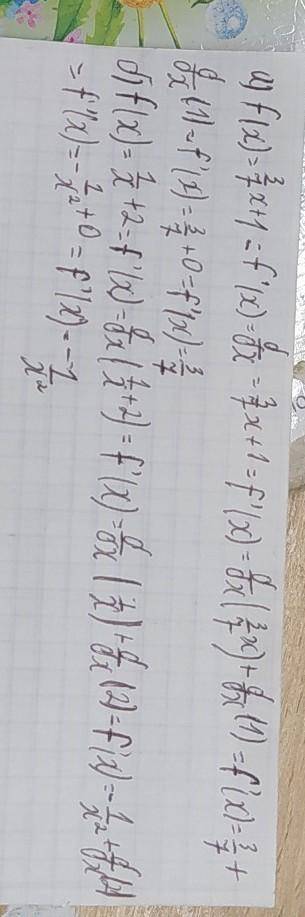 а) f(x) = 3/7 x + 1 = f'(x) = d/dx = 3/7 x + 1 = f'(x) = d/dx (3/7 x) + d/dx (1) = f'(x) = 3/7 +
d/dx (1) = f'(x) = 3/7 + 0 = f'(x) = 3/7
б) f(x) = 1/x + 2 = f'(x) = d/dx (1/x + 2) = f'(x) = d/dx (1/x) + d/dx (2) = f'(x) = -1/x² + d/dx (2)
= f'(x) = -1/x² + 0 = f'(x) = -1/x²